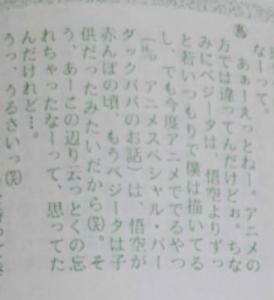 なーって。
鳥 あぁーえっとねー。アニメの
方では違ってんだけどぉ。ちな
みにベジータは、悟空よりずっ
と若いつもりで僕は描いてる
し、でも今度アニメででるやつ
アニメスペシャル・バー
ダックパパのお話)は、悟空が
赤んぼの頃、もうベジータは子
供だったみたいだから(笑)。そ
う、あーこの辺り云っとくの忘
れちゃったなーって、思ってた
んだけれど…。
うっ、うるさいっ(笑)